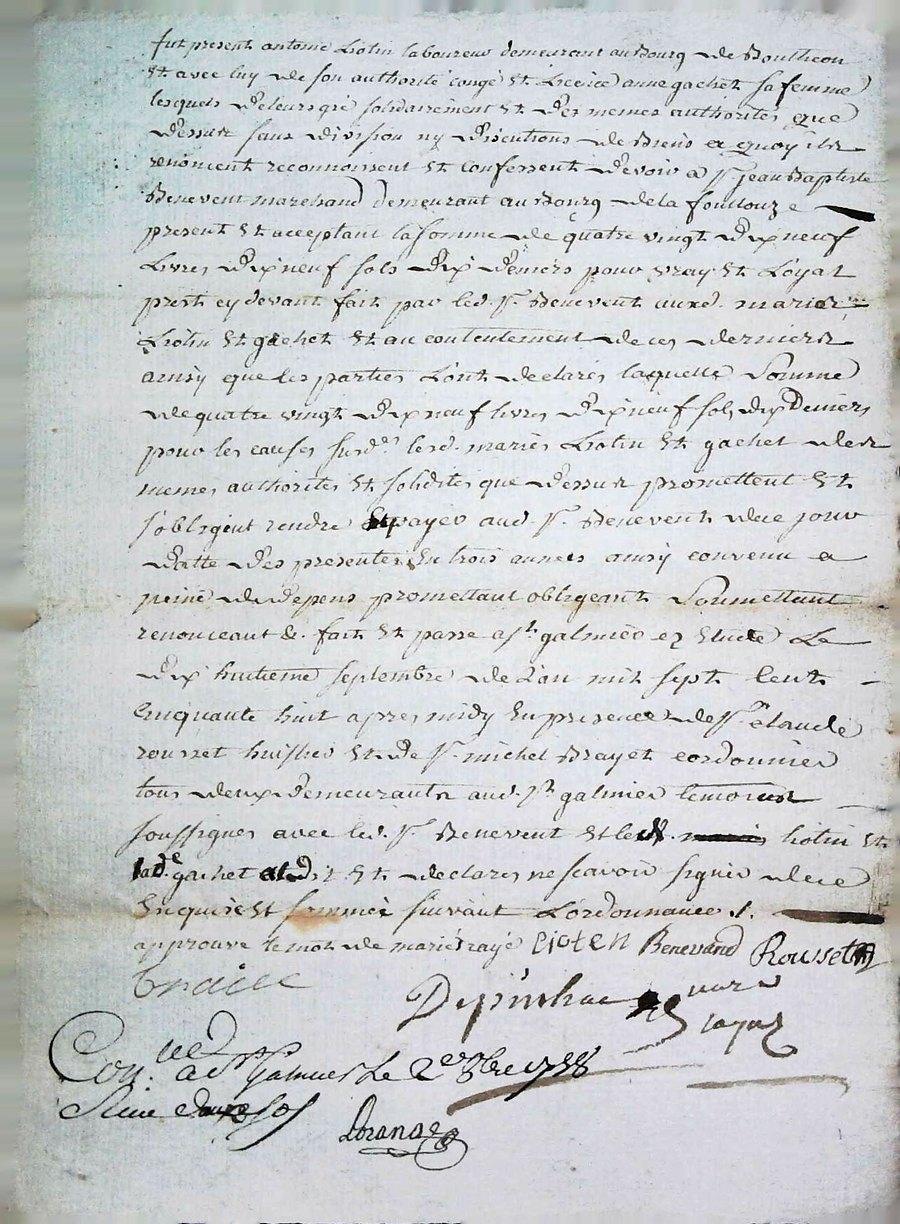 fut present antoine Liotin laboureur demeurant au Bourg de Bontheon
Et avec luy de son authorité congé Et Licence anne gachet sa femme
lesquels de leurs gré solidairement Et des memes authorités que
dessus sans division ny discutions de Biens a quoy ils
renoncent reconnoissent Et confessent devoir a Sr jean Baptiste
Benevent marchand demeurant au Bourg de la fouilouze
present Et acceptant la somme de quatre vingt dix neuf
Livres dix neuf sols dix deniers pour vray Et Loyal
prest cy devant fait par led. Sr. Benevent auxd. mariés
Liotin Et gachet Et au contentement de ces derniers
ainsy que les parties L'ont declarés laquelle Somme
de quatre vingt dix neuf livres dix neuf sols dix Deniers
pour les causes susd.es lesd. mariés Liotin Et gachet des
memes authorités Et solidités que dessus promettent Et
s'obligent rendre Et payer aud. Sr. Benevent de ce jour
datte des presentes En trois années ainsy convenu a
peine de depens promettant obligeant Soumettant
renonceant &. fait Et passé a St. galmier ez Etude Le
dix huitieme septembre de L'an mil sept Cent
Cinquante huit apres midy En presence de Sr. claude
rousset huissier Et de Sr. michel Brayet cordonnier
tous deux demeurants aud. St. galmier temoins
soussignes avec led. Sr. Benevent Et led. liotin Et
lad.e gachet a dit Et declarés ne scavoir signer de ce
Enquise Et sommée suivant L'ordonnance ./.
approuve le mot de mariés rayé Liotin Benevand Rousset
Braiet
Depinhac
nore
royal
Con.lé a St Galmier Le 2e 8bre 1758
Reçu douze sols
Loranag